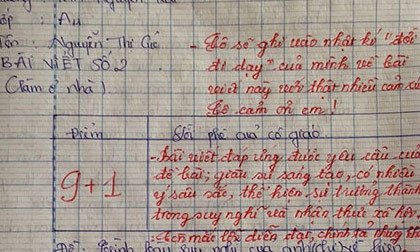 Lớp : A4
Tên : Nguyễn Thị Cúc
BÀI VIẾT SỐ 2
(Làm ở nhà)
- Cô sẽ ghi vào nhật kí "đời
đi dạy" của mình về bài
viết này với thật nhiều cảm xúc
Cô cảm ơn em !
Điểm
Lời phê của cô giáo
9+1
- Bài viết đáp ứng được yêu cầu của
đề bài; giàu sự sáng tạo, có nhiều
ý sâu sắc, thể hiện sự trưởng thành
trong suy nghĩ và nhận thức xã hội.
- Còn mắc lỗi diễn đạt, chính tả nhưng
Đề : Trình bày suy nghĩ của anh (chị) về